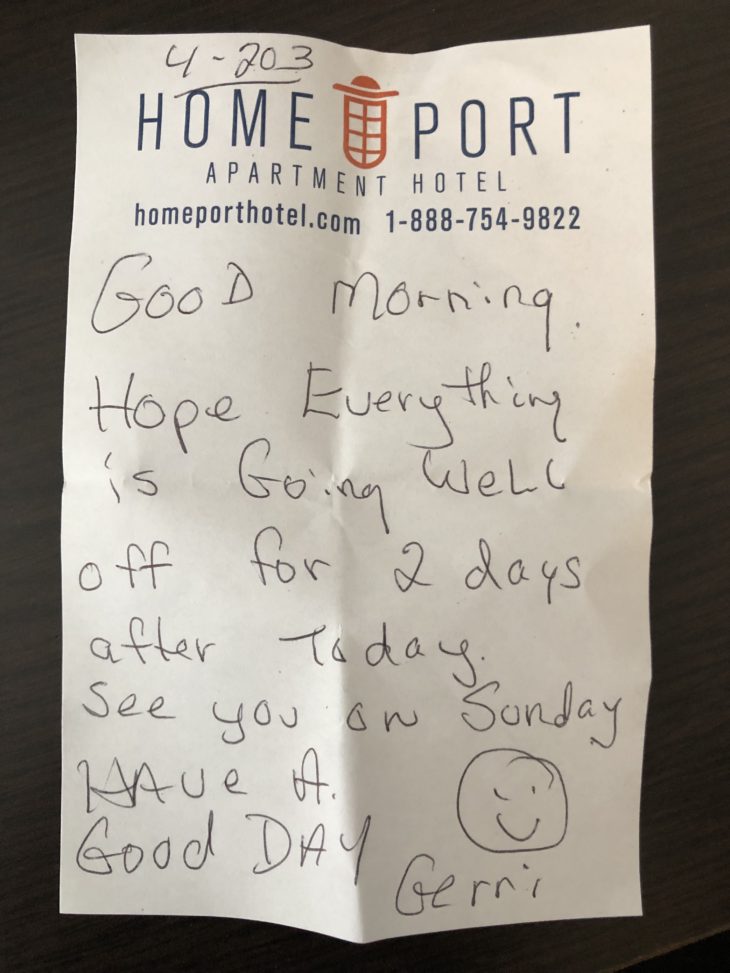 4-203
HOME PORT
APARTMENT HOTEL
homeporthotel.com 1-888-754-9822
GooD Morning.
Hope Everything
is Going WeLL
off for 2 days
after Today.
See you on Sunday
HAve A.
Good DAY
Gerri